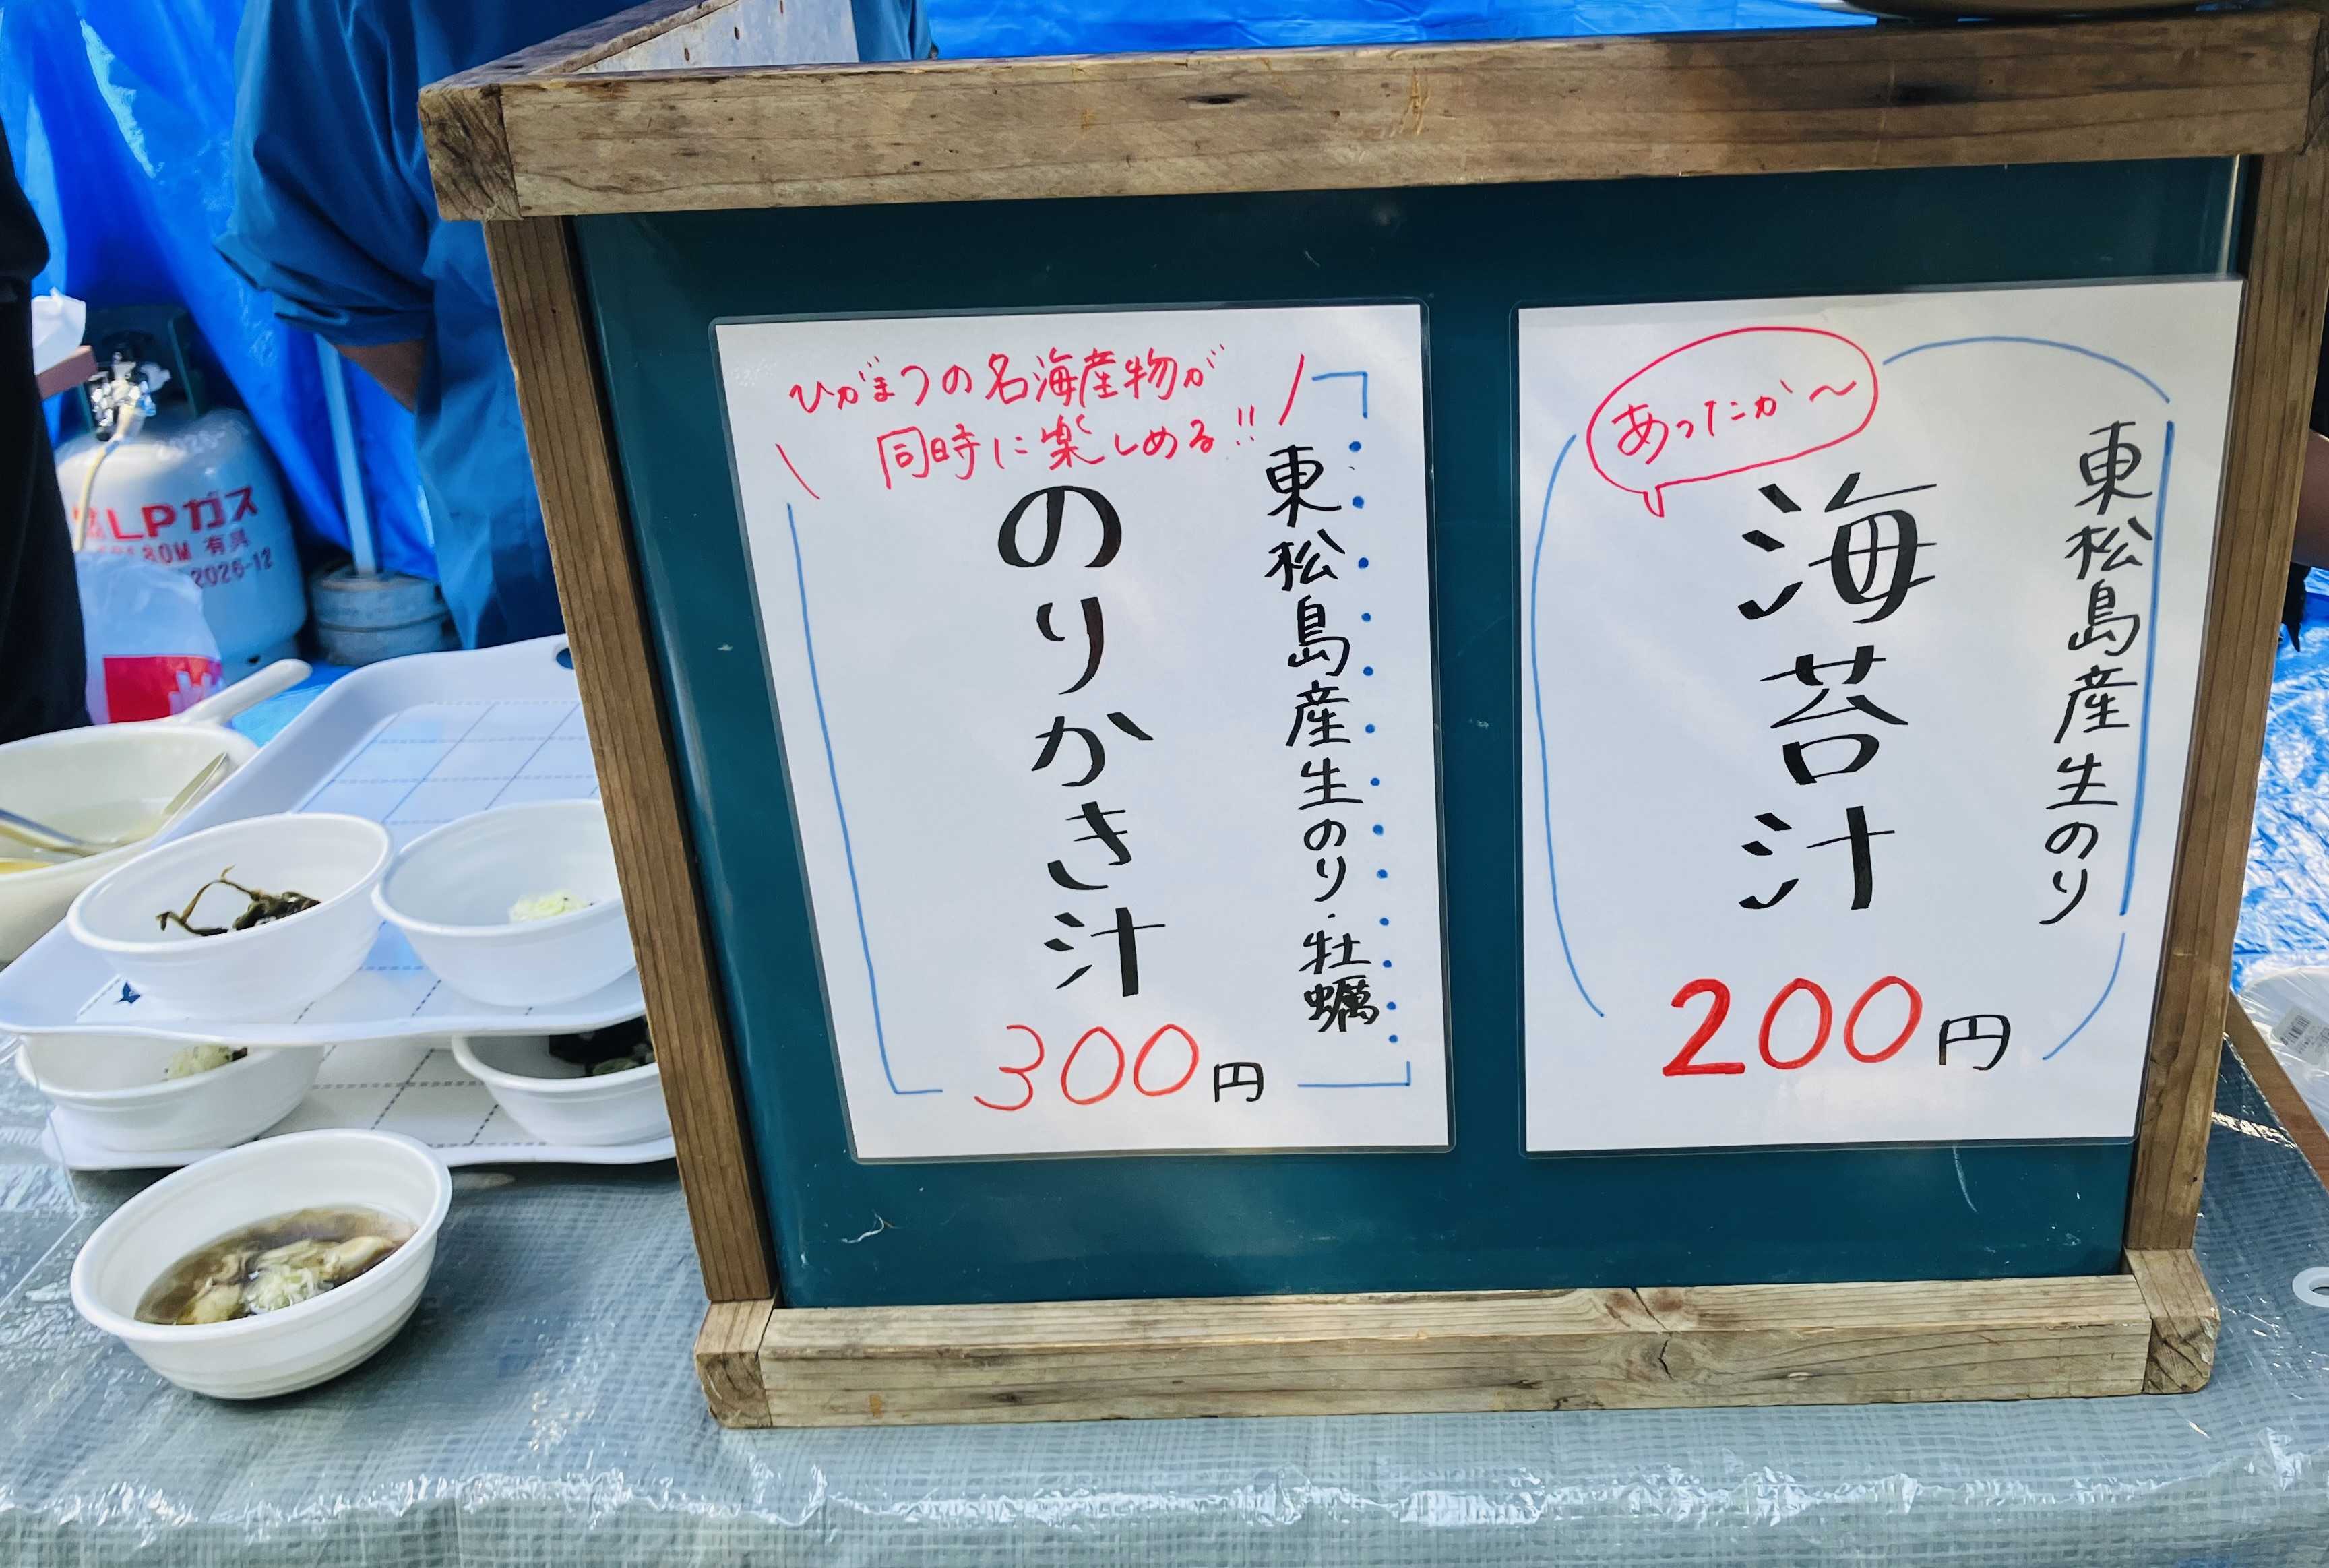 ひがまつの名海産物が
同時に楽しめる!!
東松島産生のり・牡蠣
のりかき汁
300円
あったか〜
東松島産生のり
海苔汁
200円
LPガス
80M 有具
2026-12